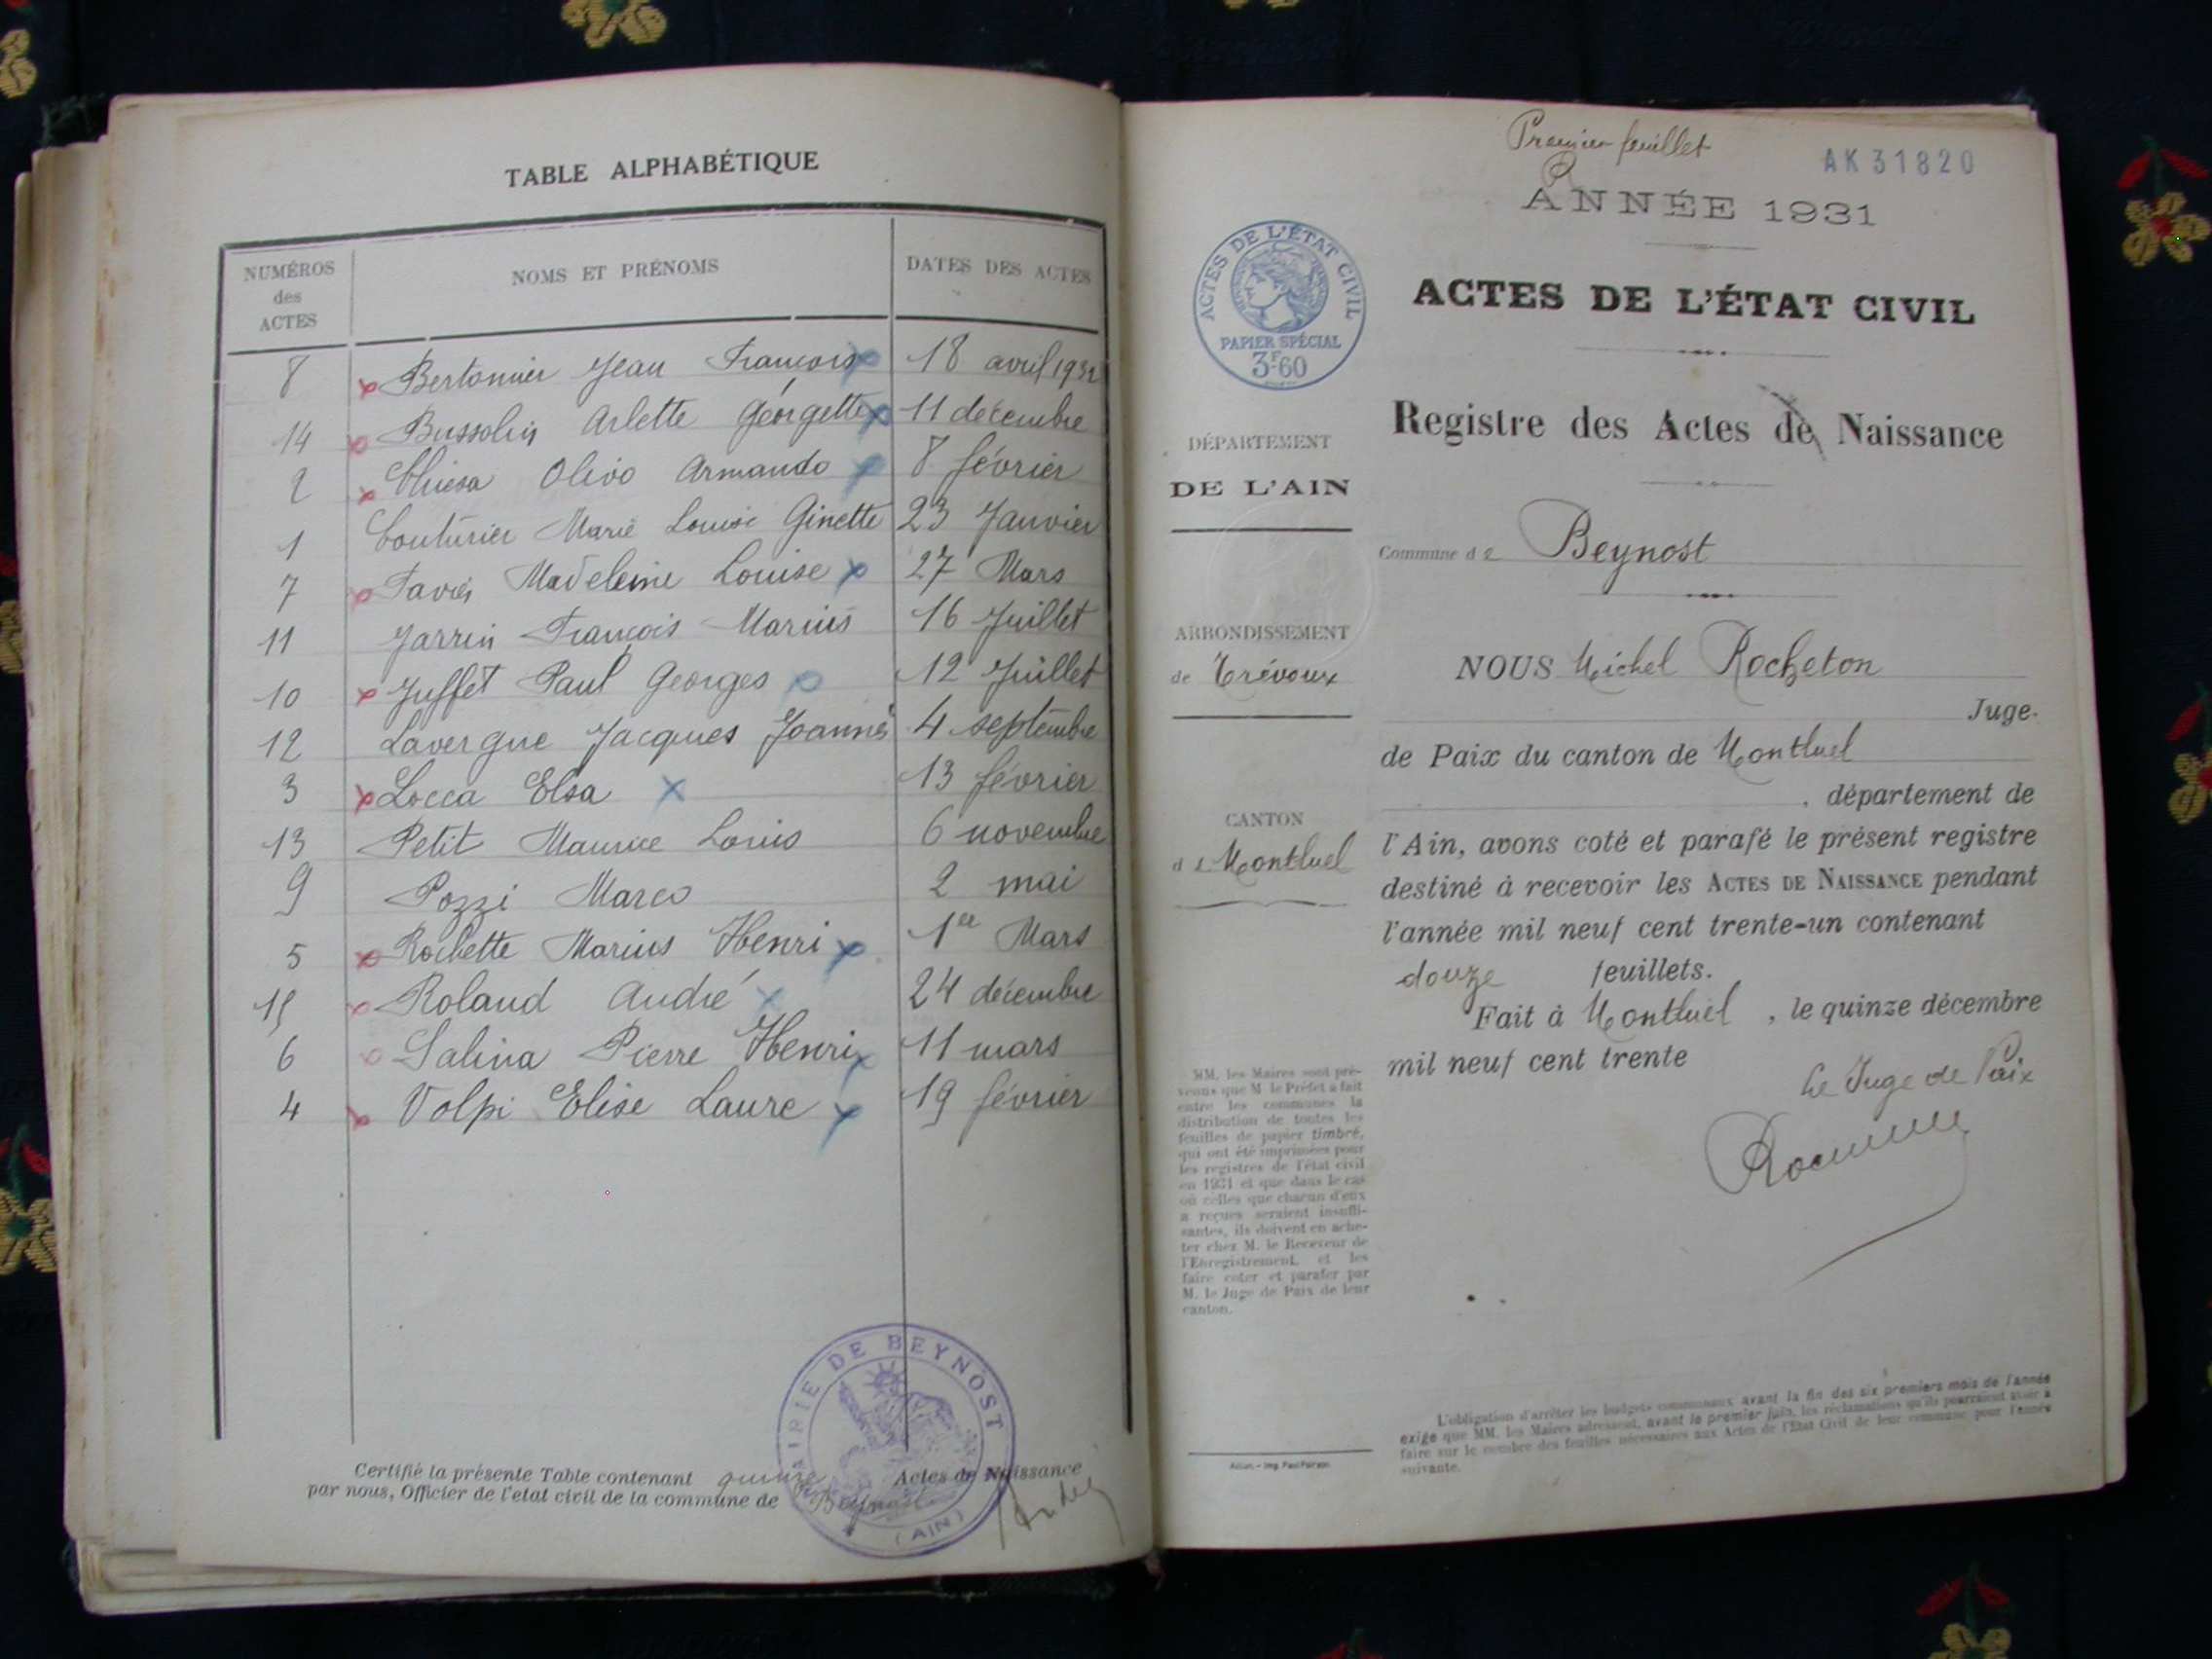 TABLE ALPHABÉTIQUE
NUMÉROS des ACTES NOMS ET PRÉNOMS DATES DES ACTES
8 Bertonnier Jean François 18 avril 1931
14 Bussolin Arlette Georgette 11 décembre
2 Chiesa Olivo Armando 8 février
1 Couturier Marie Louise Ginette 23 Janvier
7 Favier Madeleine Louise 27 Mars
11 Jarrin François Marius 16 Juillet
10 Juffet Paul Georges 12 Juillet
12 Lavergne Jacques Joannès 4 septembre
3 Locca Elsa 13 février
13 Petit Maurice Louis 6 novembre
9 Pozzi Marco 2 mai
5 Rochette Marius Henri 1er Mars
15 Roland André 24 décembre
6 Salina Pierre Henri 11 mars
4 Volpi Elise Laure 19 février
Certifié la présente Table contenant quinze Actes de Naissance
par nous, Officier de l'etat civil de la commune de Beynost
MAIRIE DE BEYNOST
(AIN)
Premier feuillet
AK 31820
ANNÉE 1931
ACTES DE L'ÉTAT CIVIL
PAPIER SPÉCIAL
3F60
ACTES DE L'ÉTAT CIVIL
Registre des Actes de Naissance
DÉPARTEMENT
DE L'AIN
Commune de Beynost
ARRONDISSEMENT
de Trévoux
NOUS Michel Rocheton
Juge
de Paix du canton de Montluel
, département de
CANTON
de Montluel
l'Ain, avons coté et parafé le présent registre
destiné à recevoir les ACTES DE NAISSANCE pendant
l'année mil neuf cent trente-un contenant
douze feuillets.
Fait à Montluel, le quinze décembre
mil neuf cent trente
Le Juge de Paix
MM. les Maires sont pré-
venus que M. le Préfet a fait
entre les communes la
distribution de toutes les
feuilles de papier timbré,
qui ont été imprimées pour
les registres de l'état civil
en 1931 et que dans le cas
où celles que chacun d'eux
a reçues seraient insuffi-
santes, ils doivent en ache-
ter chez M. le Receveur de
l'Enregistrement, et les
faire coter et parafer par
M. le Juge de Paix de leur
canton.
L'obligation d'arrêter les budgets communaux avant la fin des six premiers mois de l'année
exige que MM. les Maires adressent, avant le premier juin, les réclamations qu'ils pourraient avoir à
faire sur le nombre des feuilles nécessaires aux Actes de l'Etat Civil de leur commune pour l'année
suivante.